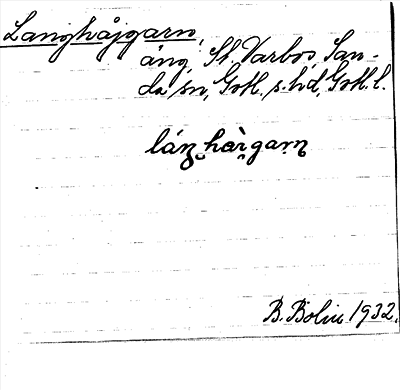 Langhåjgarn,
äng, St. Varbos, San-
da sn, Gotl. s. hd, Gotl. l.
láŋ̮hàr̮garn̥
B. Bolin 1932.